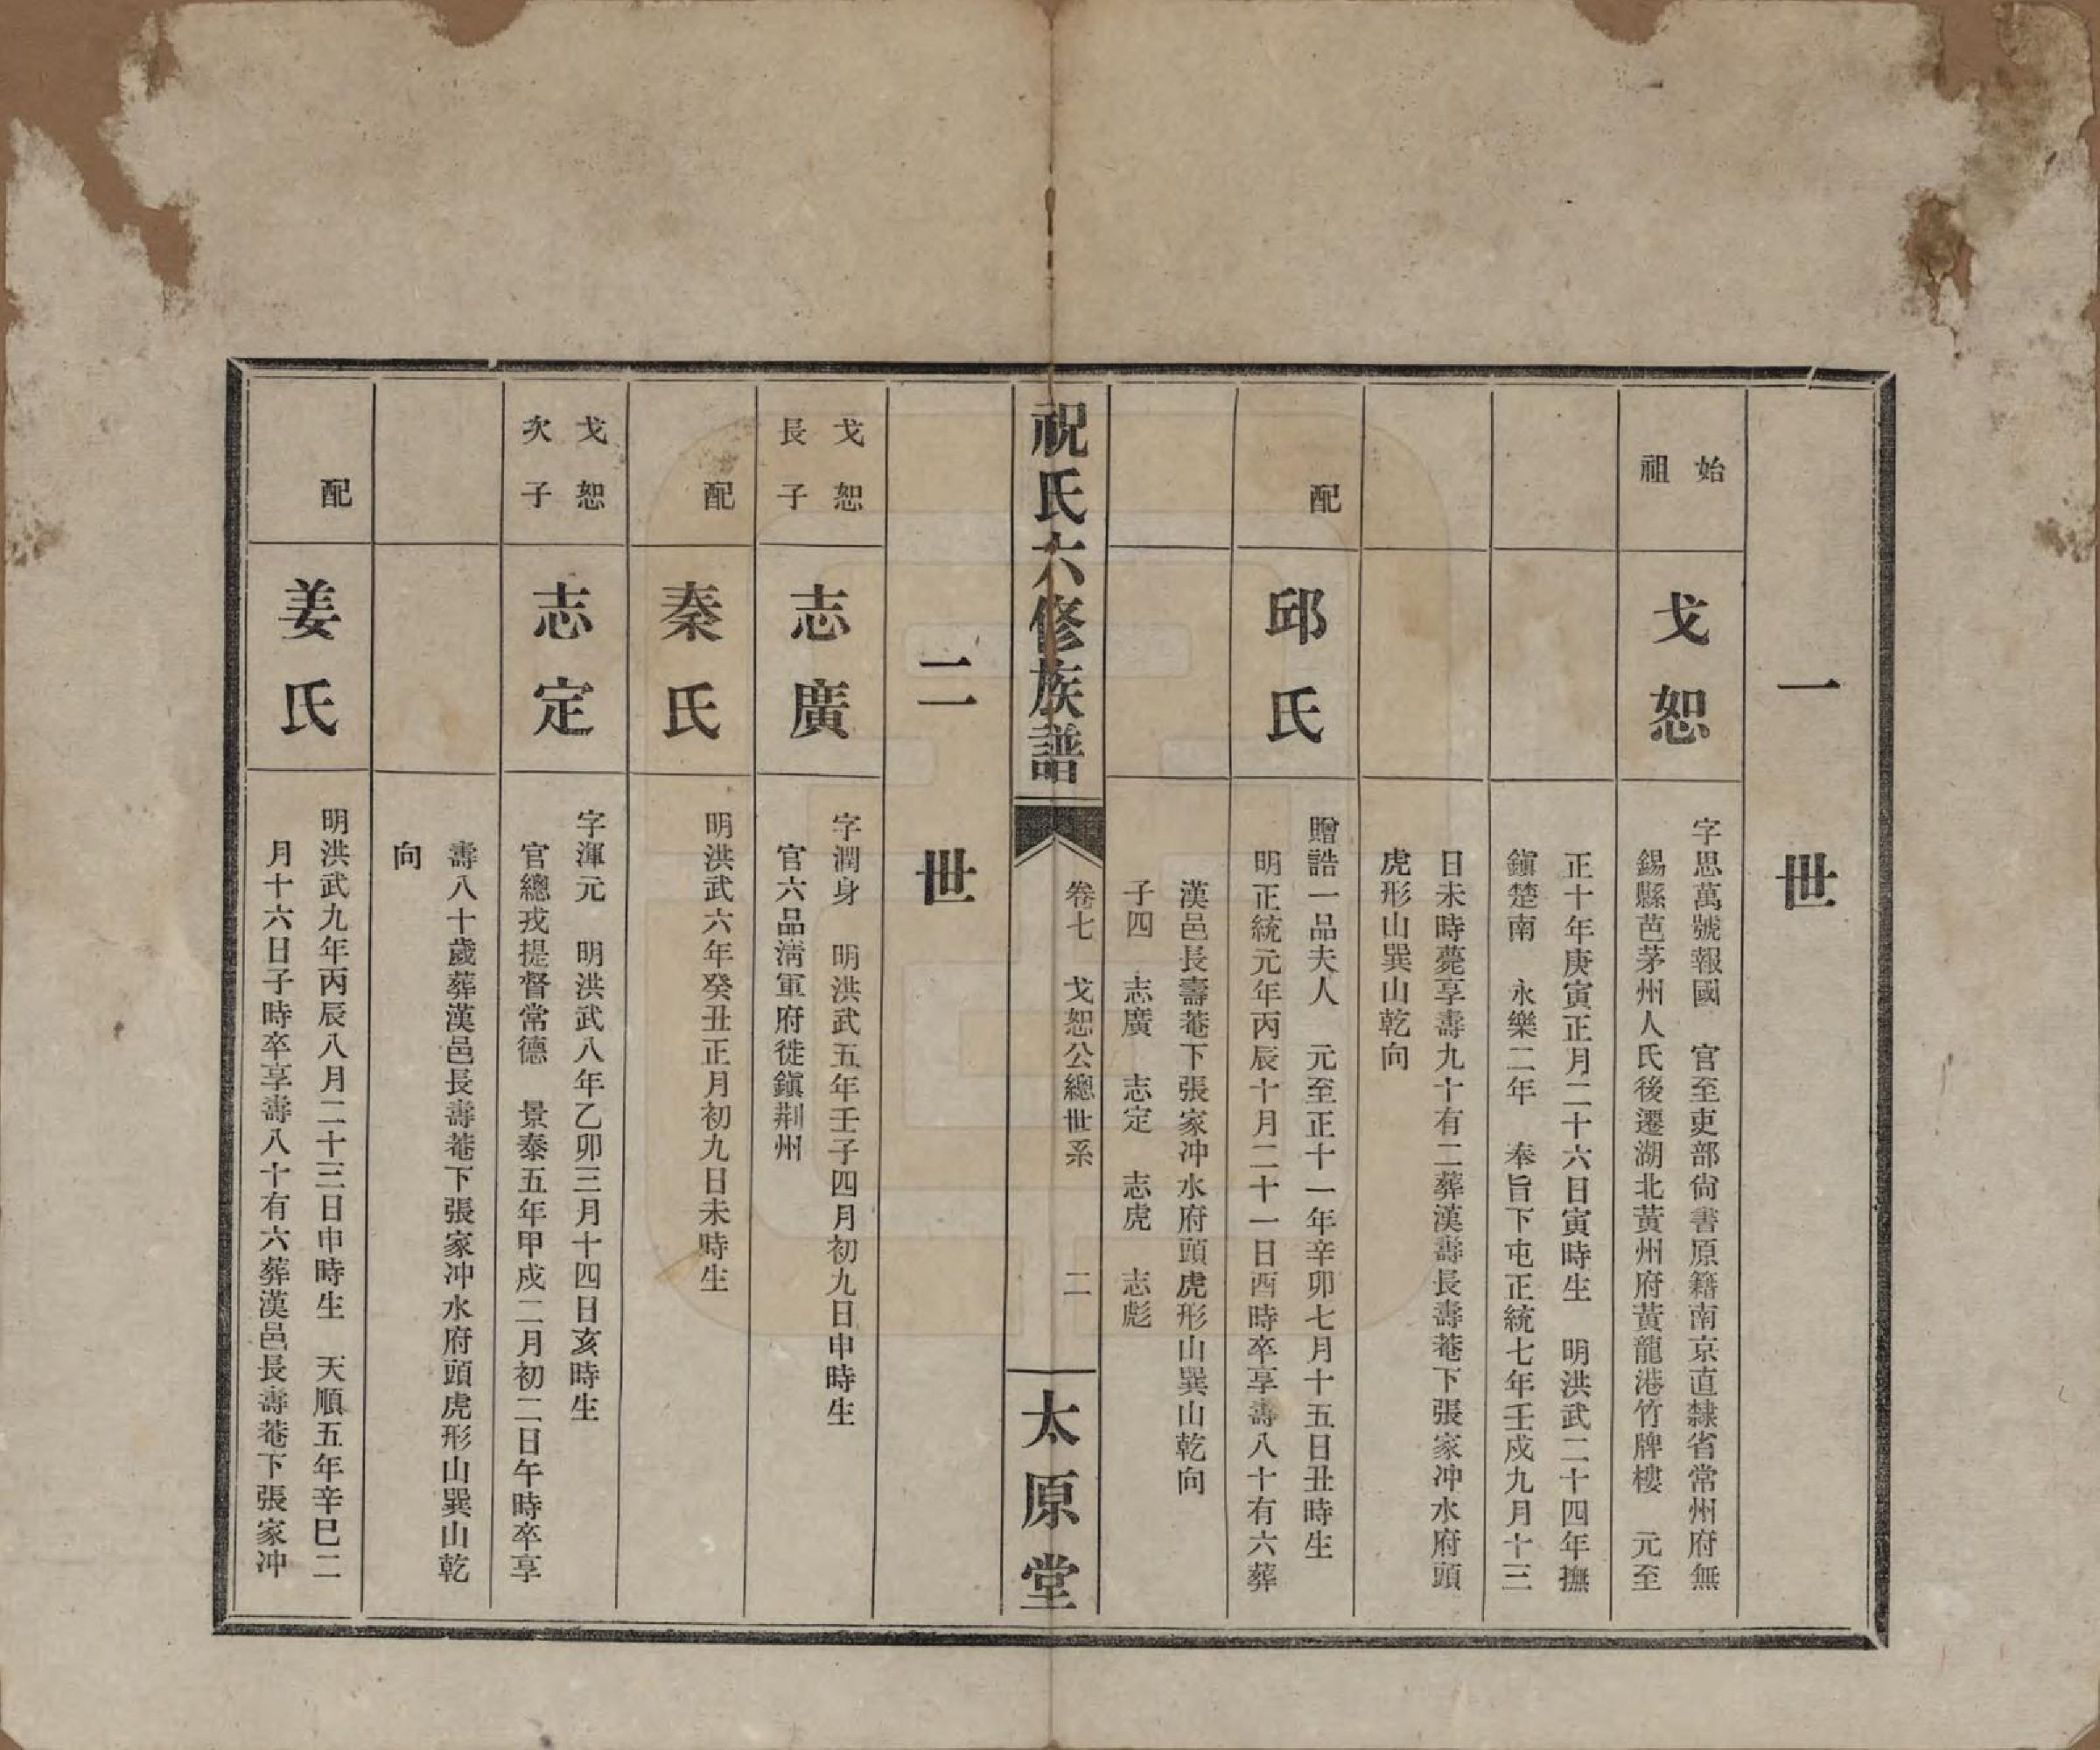 一世
始祖
戈恕
字思萬號報國　官至吏部尙書原籍南京直隸省常州府無
錫縣芭茅州人氏後遷湖北黃州府黃龍港竹牌樓　元至
正十年庚寅正月二十六日寅時生　明洪武二十四年撫
鎭楚南　永樂二年　奉旨下屯正統七年壬戍九月十三
日未時薨享壽九十有二葬漢壽長壽菴下張家冲水府頭
虎形山巽山乾向
配
邱氏
贈誥一品夫人　元至正十一年辛卯七月十五日丑時生
明正統元年丙辰十月二十一日酉時卒享壽八十有六葬
漢邑長壽菴下張家冲水府頭虎形山巽山乾向
子四　志廣　志定　志虎　志彪
祝氏六修族譜
卷七　戈恕公總世系　二
太原堂
二世
戈恕
長子
志廣
字潤身　明洪武五年壬子四月初九日申時生
官六品淸軍府徙鎭荆州
配
秦氏
明洪武六年癸丑正月初九日未時生
戈恕
次子
志定
字渾元　明洪武八年乙卯三月十四日亥時生
官總戎提督常德　景泰五年甲戍二月初二日午時卒享
壽八十歲葬漢邑長壽菴下張家冲水府頭虎形山巽山乾
向
配
姜氏
明洪武九年丙辰八月二十三日申時生　天順五年辛巳二
月十六日子時卒享壽八十有六葬漢邑長壽菴下張家冲